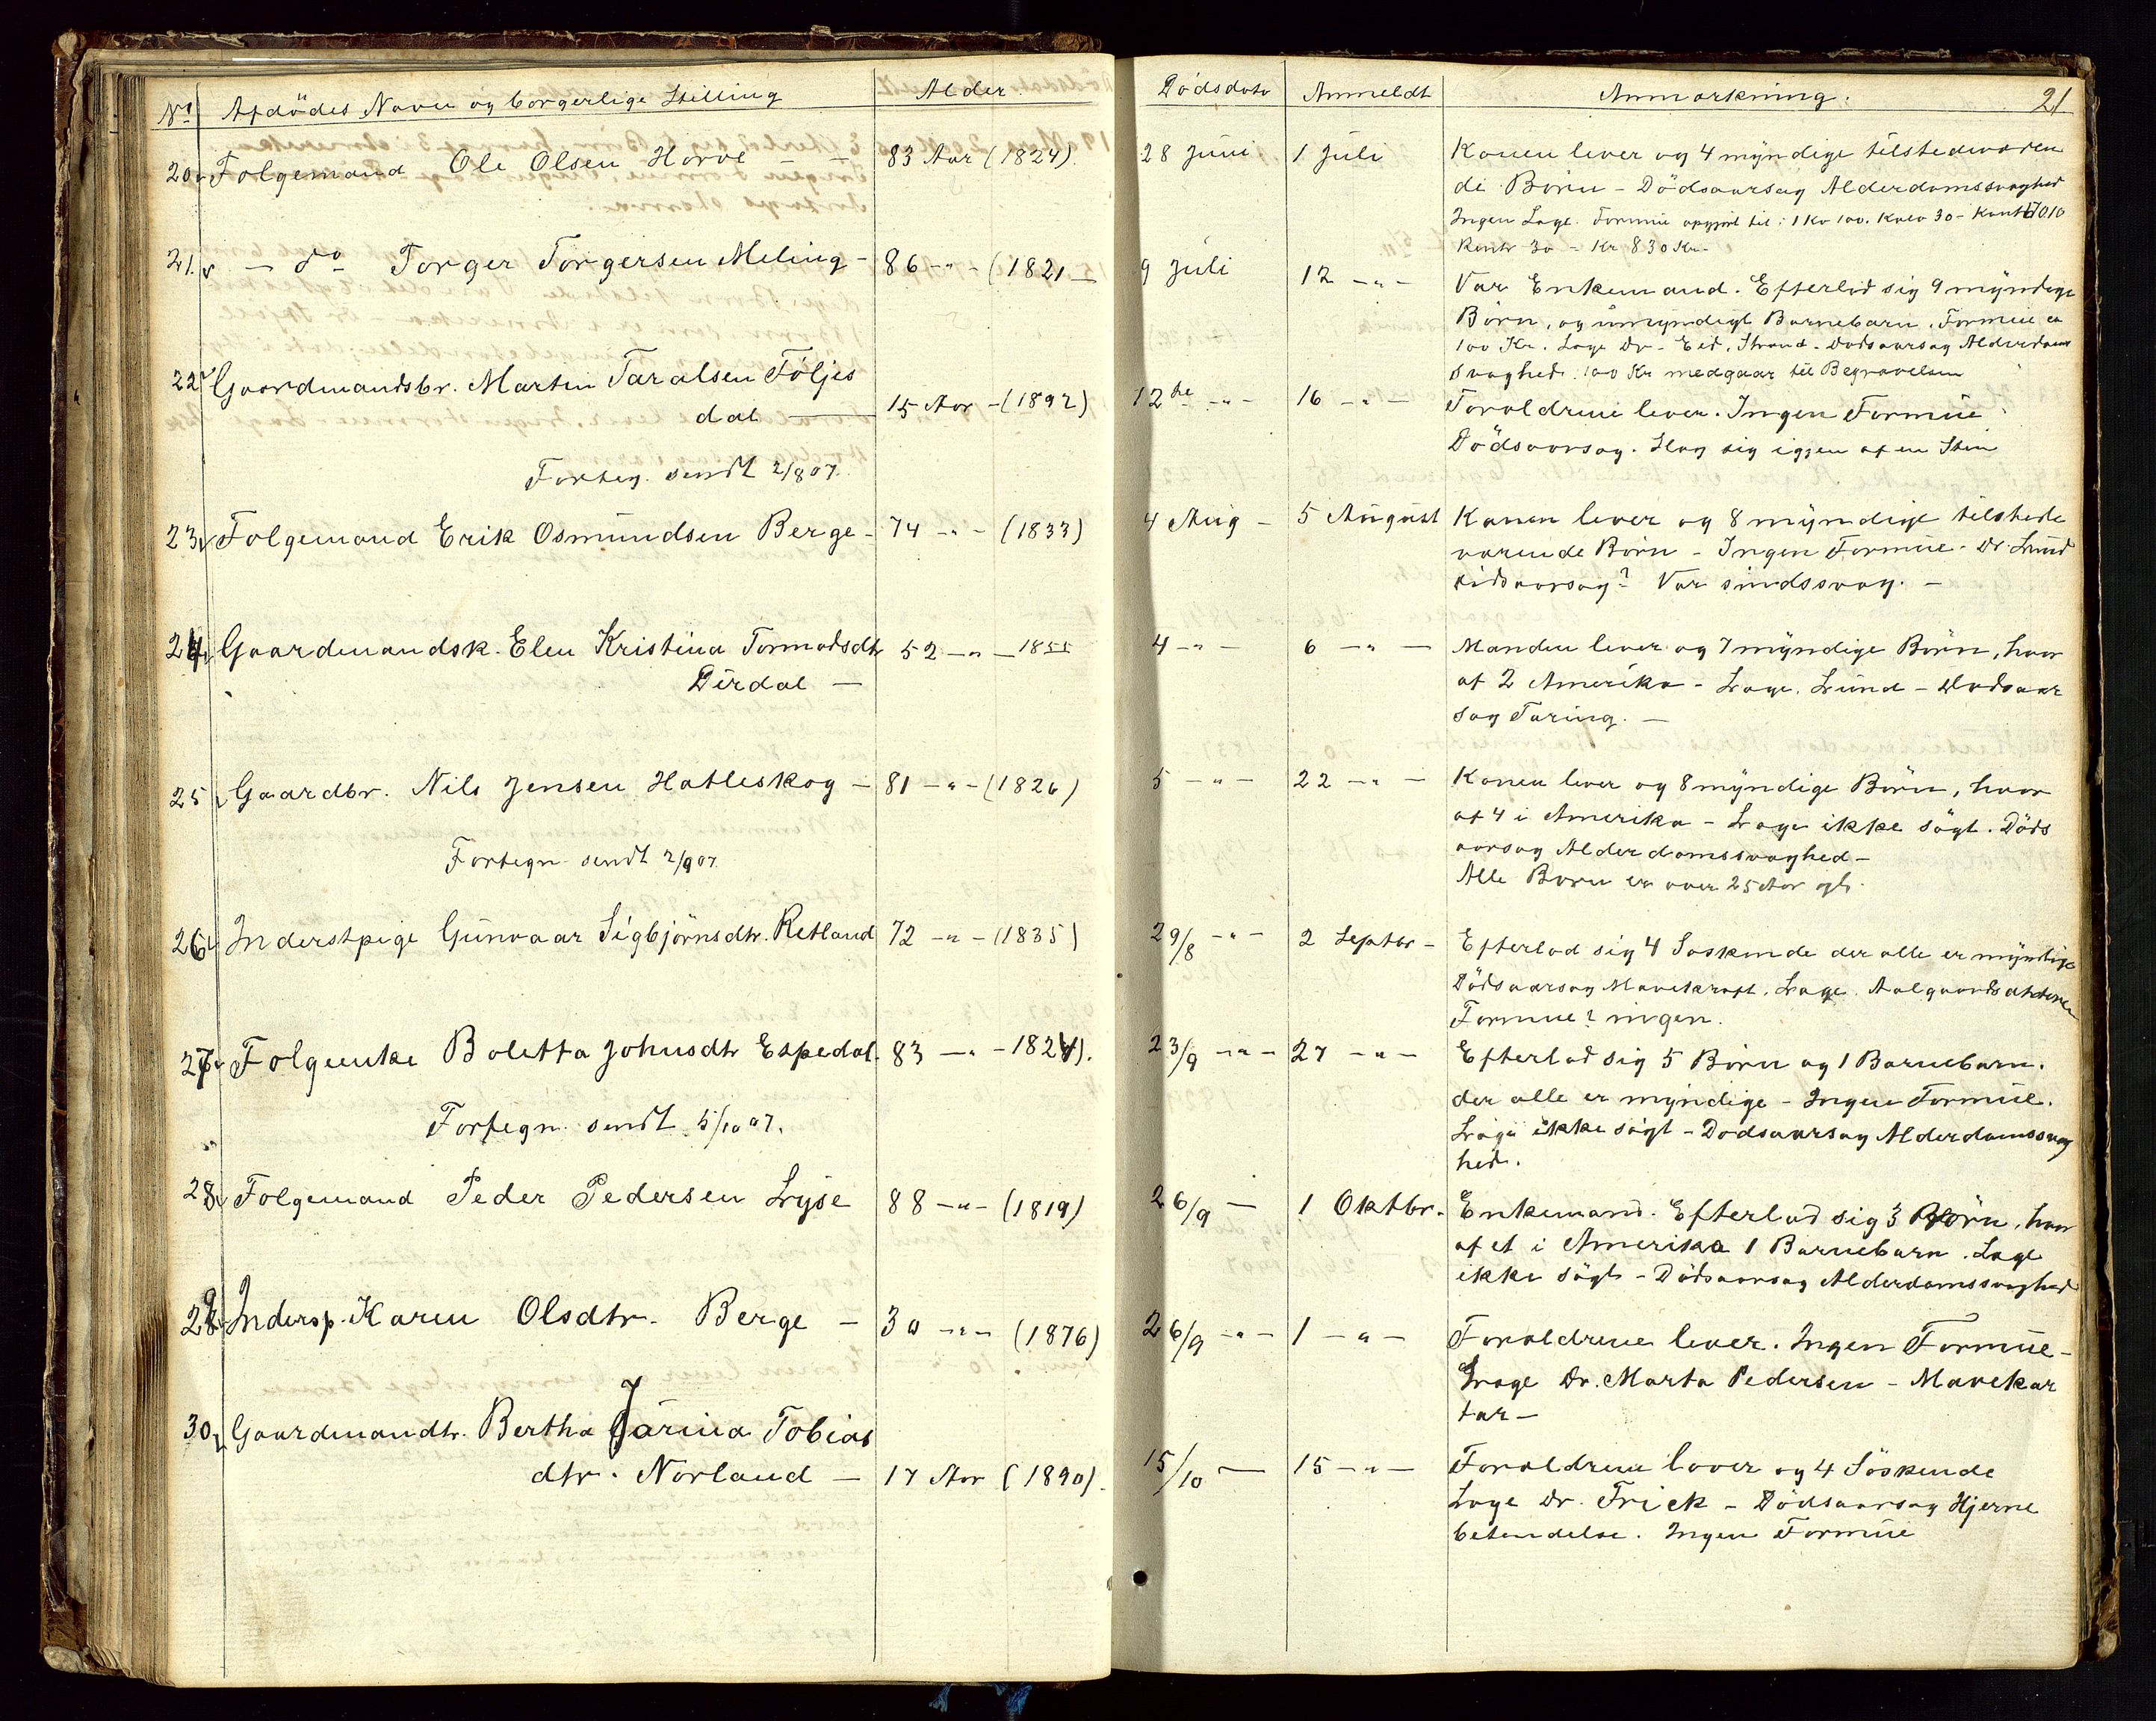 No Afdödes Navn og borgerlige Stilling Alder Dödsdato Anmeldt Anmærkning. 21
20 Folgemand Ole Olsen Horve – – 83 Aar (1824). 28 Juni 1 Juli Konen lever og 4 myndige tilstedeværen
de Börn – Dödsaarsag Alderdomssvaghed
Ingen Læge. Formue opgjort til: 1 Ko 100. Kalv 30 –
Rente 30 – Kr 830 Kr.
21. – do Torger Torgersen Meling – 86 –"– (1821 – 9 Juli 12 –"– Var Enkemand. Efterlod sig 9 myndige
Börn, og umyndigt Barnebarn. Formue ca
100 Kr. Læge Dr. Eid, Strand. Dödsaarsag Alderdoms
svaghed. 100 Kr medgaar til Begravelsen
22 Gaardmandsbr. Martin Taralsen Följes
dal – 15 Aar – (1892) 12te –"– 16 –"– Forældrene lever. Ingen Formue
Dödsaarsag. Slog sig igjen af en Sten
Forteg. sendt 2/8 07.
23 Folgemand Erik Osmundsen Berge – 74 –"– (1833) 4 Aug – 5 August Konen lever og 8 myndige tilstede
værende Börn – Ingen Formue. Dr. Lund
Var sindssvag. –
24 Gaardmandsk. Elen Kristina Tormodsdtr
Dirdal – 52 –"– 1855 4 –"– 6 –"– Manden lever og 7 myndige Börn, hvor
af 2 Amerika – Læge. Lund – Dödsaar
sag Tæring. –
25 Gaardbr. Nils Jensen Hatleskog – 81 –"– (1826) 5 –"– 22 –"– Konen lever og 8 myndige Börn, hvor
af 4 i Amerika – Læge ikke sögt. Döds
aarsag Alderdomssvaghed –
Alle Börn er over 25 Aar
Fortegn sendt 2/9 07
26 Inderstpige Gunvaar Sigbjörnsdtr. Retland 72 –"– (1835) 29/8 –"– 2 Septbr – Efterlod sig 4 Söskende der alle er myndige
Dödsaarsag Mavekræft. Læge. Aalgaards
Formue? ingen.
27 Folgeenke Boletta Johnsdtr Espedal. 83 –"– 1824). 23/9 –"– 27 –"– Efterlod sig 5 Börn og 1 Barnebarn.
der alle er myndige – Ingen Formue.
Læge ikke sögt – Dödsaarsag Alderdomssvag
hed.
Fortegn. sendt 5/10 07.
28 Folgemand Peder Pedersen Lyse 88 –"– (1819) 26/9 – 1 Oktbr. Enkemand. Efterlod sig 3 Börn, hvor
af et i Amerika 1 Barnebarn. Læge
ikke sögt – Dödsaarsag Alderdomssvaghed
29 Indersp. Karen Olsdtr. Berge – 30 –"– (1876) 26/9 –"– 1 –"– Forældrene lever. Ingen Formue –
Læge Dr. Marta Pedersen – Mavekat
tar –
30 Gaardmandtr. Bertha Jörina Tobias
dtr. Norland – 17 Aar (1890). 15/10 – 15 –"– Forældrene lever og 4 Söskende
Læge Dr. Frick – Dödsaarsag Hjerne
betendelse. Ingen Formue